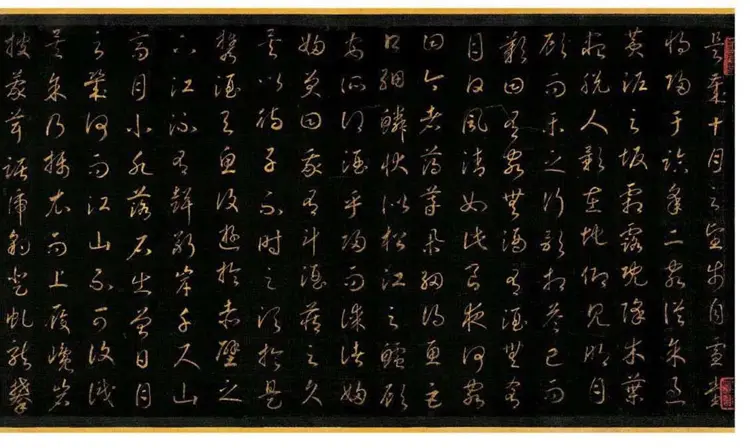 是歲十月之望步自雪堂
將歸于臨皋二客從余過
黃泥之坂霜露既降木葉
盡脫人影在地仰見明月
顧而樂之行歌相答已而
歎曰有客無酒有酒無肴
月白風清如此良夜何客
曰今者薄暮舉網得魚巨
口細鱗狀似松江之鱸顧
安所得酒乎歸而謀諸婦
婦曰我有斗酒藏之久
矣以待子不時之須於是
攜酒與魚復遊於赤壁之
下江流有聲斷岸千尺山
高月小水落石出曾日月
之幾何而江山不可復識
矣余乃攝衣而上履巉岩
披蒙茸踞虎豹登虬龍攀